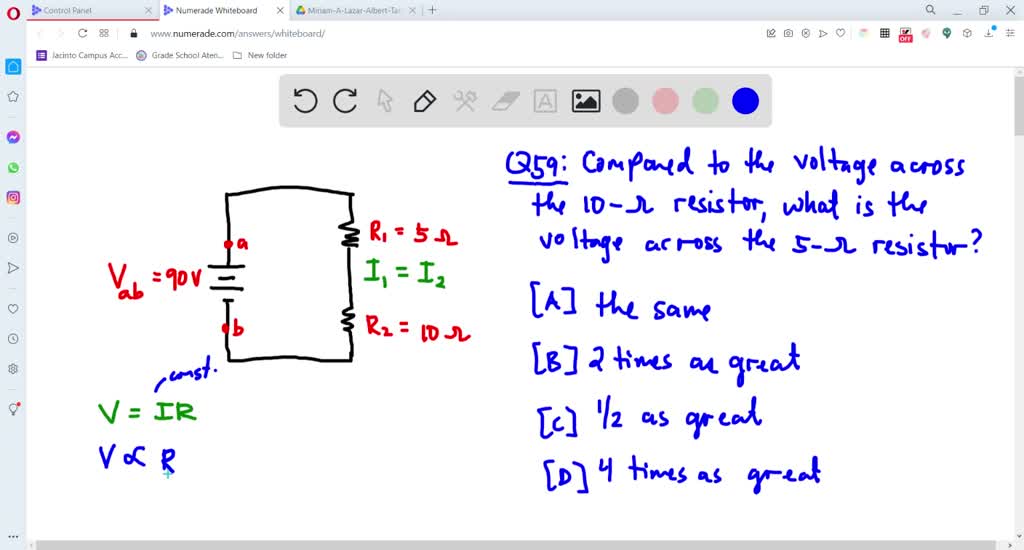 Control Panel
Numerade Whiteboard
Miriam-A-Lazar-Albert-Tar
www.numerade.com/answers/whiteboard/
OFF
Jacinto Campus Acc...
Grade School Aten...
New folder
A
Q59: Compared to the voltage across
the 10-Ω resistor, what is the
voltage across the 5-Ω resistor?
[A] the same
[B] 2 times as great
[C] 1/2 as great
[D] 4 times as great
a
R₁ = 5 Ω
V_ab = 90V
I₁ = I₂
b
R₂ = 10 Ω
const.
V = IR
V ∝ R